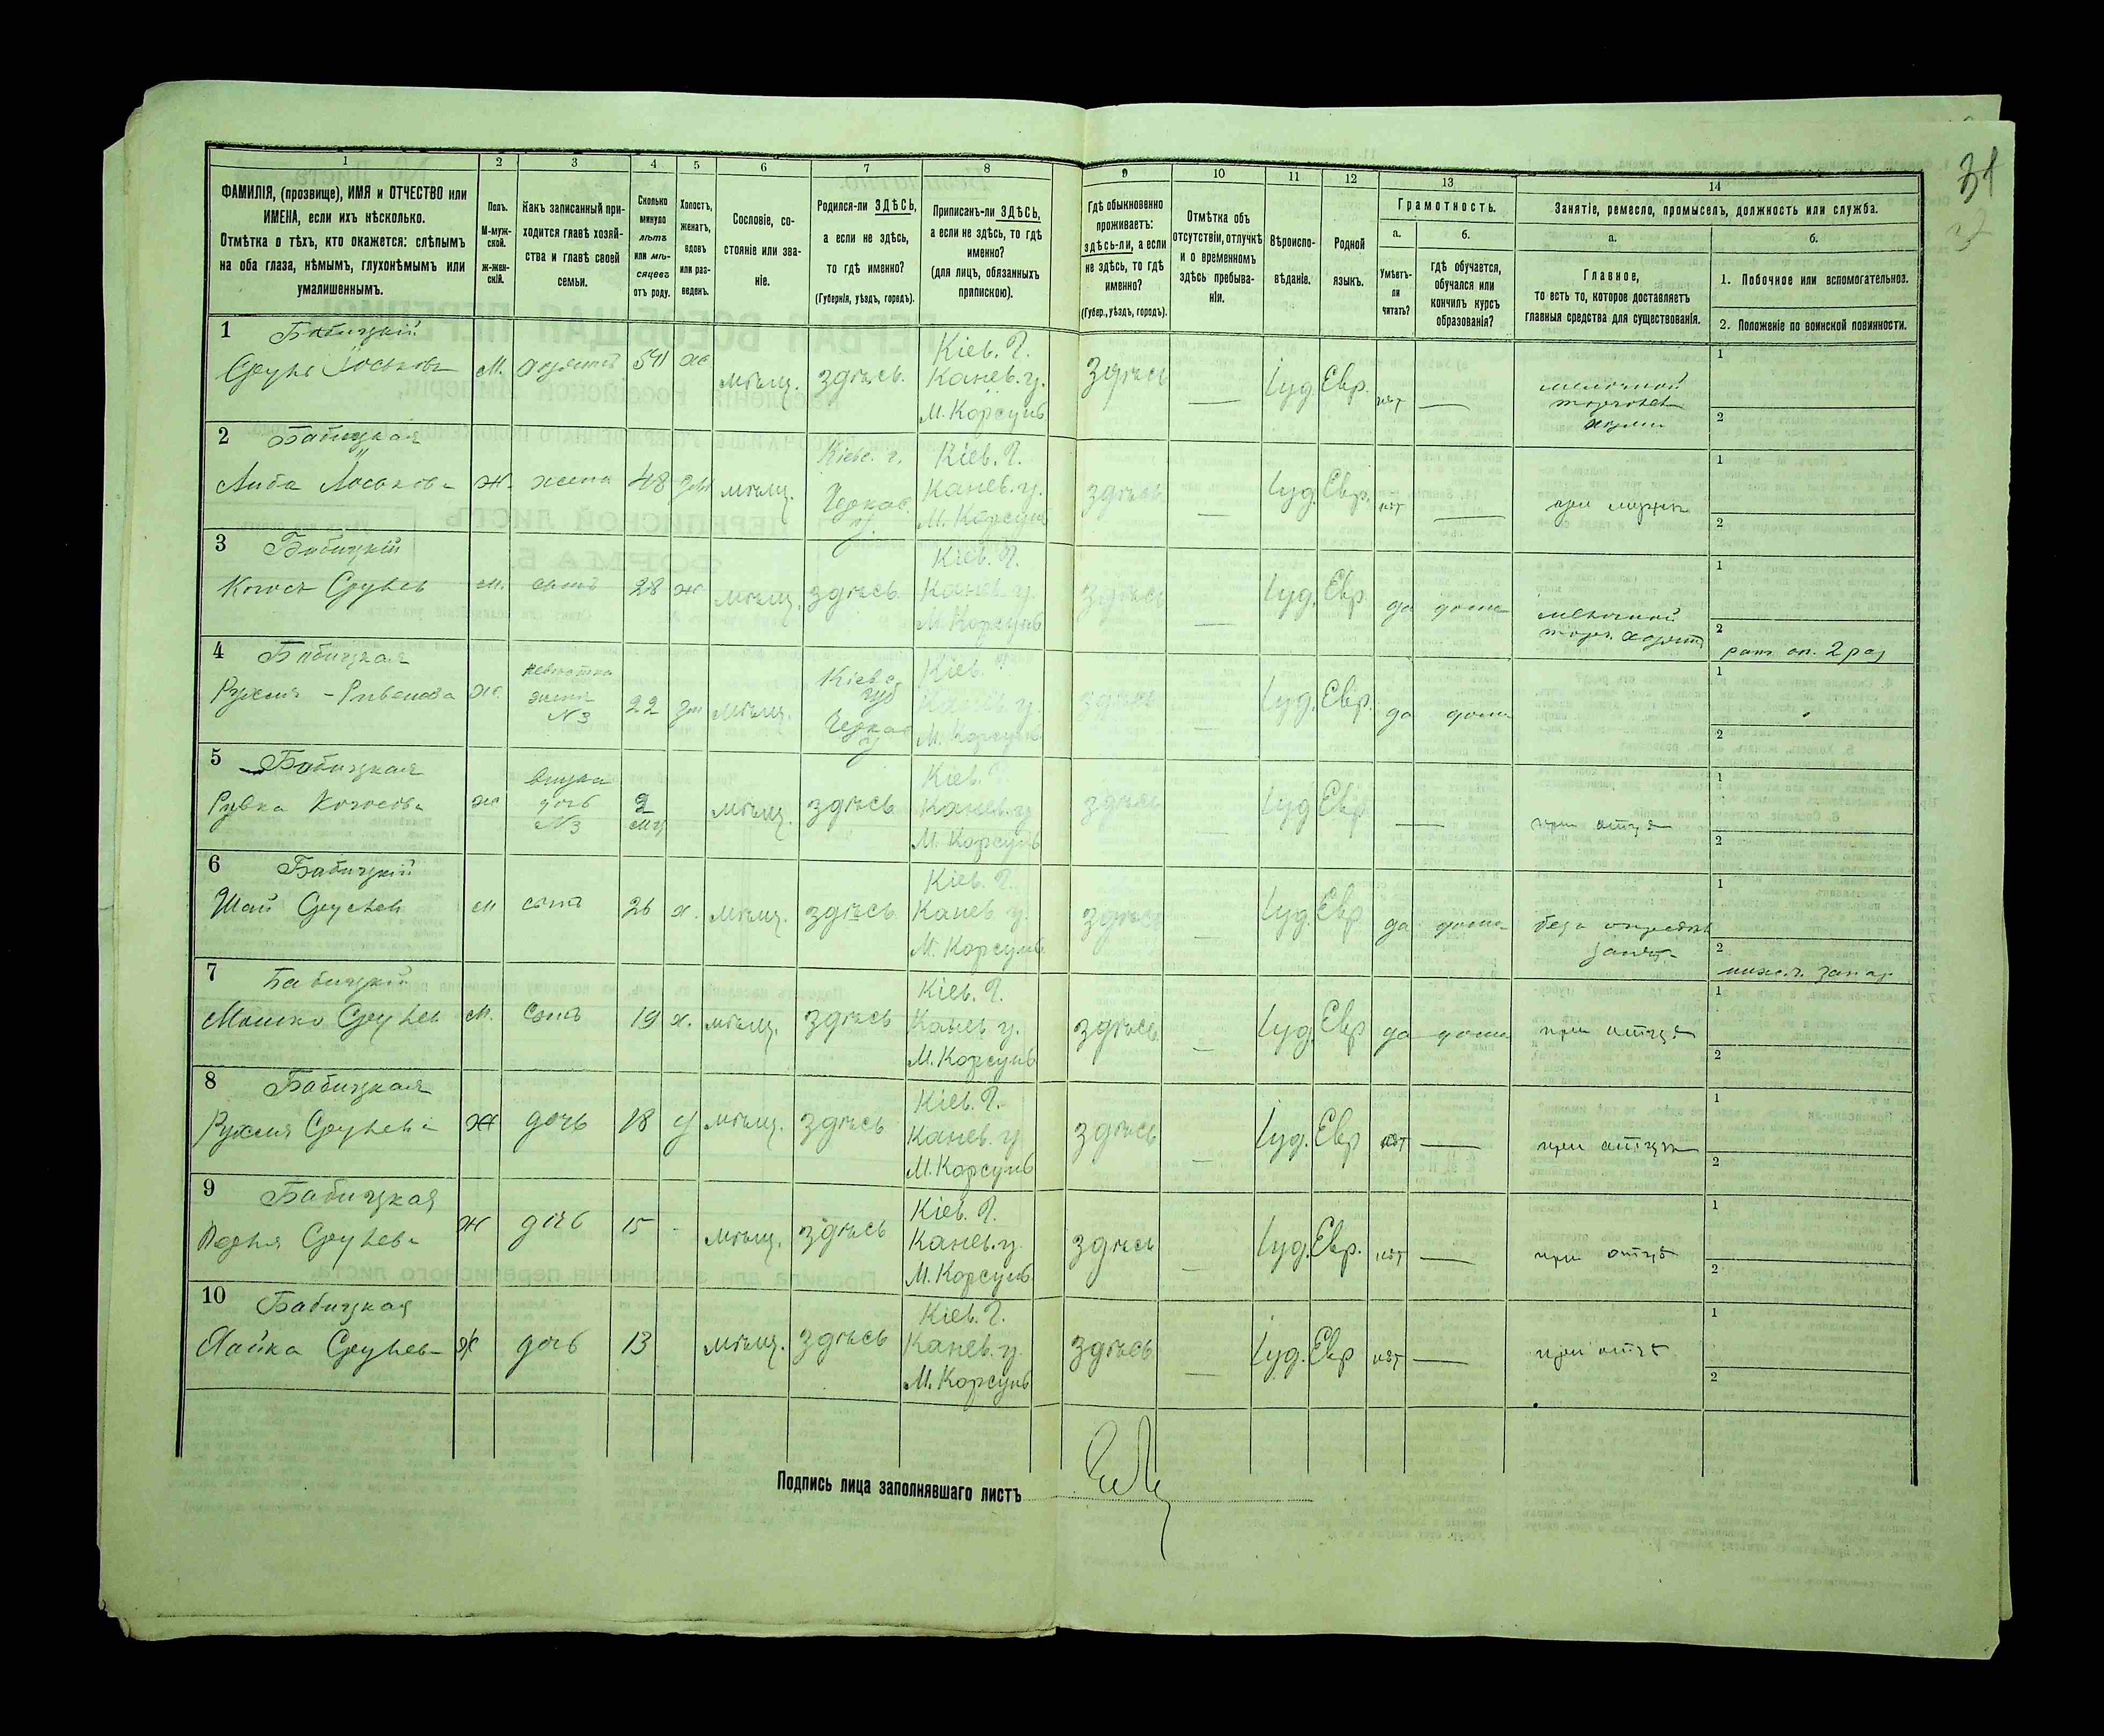 31
1 2 3 4 5 6 7 8 9 10 11 12 13 14
ФАМИЛІЯ, (прозвище), ИМЯ и ОТЧЕСТВО или
ИМЕНА, если ихъ нѣсколько.
Отмѣтка о тѣхъ, кто окажется: слѣпымъ
на оба глаза, нѣмымъ, глухонѣмымъ или
умалишеннымъ.
Полъ.
М-муж-
ской.
ж-жен-
скій.
Какъ записанный при-
ходится главѣ хозяй-
ства и главѣ своей
семьи.
Сколько
минуло
лѣтъ
или мѣ-
сяцевъ
отъ роду.
Холостъ,
женатъ,
вдовъ
или раз-
веденъ.
Сословіе, со-
стояніе или зва-
ніе.
Родился-ли ЗДѢСЬ,
а если не здѣсь,
то гдѣ именно?
(Губернія, уѣздъ, городъ).
Приписанъ-ли ЗДѢСЬ,
а если не здѣсь, то гдѣ
именно?
(для лицъ, обязанныхъ
припискою).
Гдѣ обыкновенно
проживаетъ:
здѣсь-ли, а если
не здѣсь, то гдѣ
именно?
(Губер., уѣздъ, городъ).
Отмѣтка объ
отсутствіи, отлучкѣ
и о временномъ
здѣсь пребыва-
ніи.
Вѣроиспо-
вѣданіе.
Родной
языкъ.
Грамотность.
а.
Умѣетъ-
ли
читать?
б.
гдѣ обучается,
обучался или
кончилъ курсъ
образованія?
Занятіе, ремесло, промыселъ, должность или служба.
а.
Главное,
то есть то, которое доставляетъ
главныя средства для существованія.
б.
1. Побочное или вспомогательноз.
2. Положеніе по воинской повинности.
1 Бабицкій
Сруль Іоськовъ М. 54 ж мѣщ. здѣсь.
Кіев. г.
Канев. у.
М. Корсунь
здѣсь — Іуд. Евр. нѣт —
мелочной
торговец
1
2
2 Бабицкая
Ж. жена 48 зам мѣщ.
Кіевс. г.
Черкас.
у.
Кіев. г.
Канев. у.
М. Корсунь
здѣсь — Іуд. Евр. нѣт — при мужѣ
1
2
3 Бабицкій
Срулев м. сынъ 28 ж мѣщ. здѣсь.
Кіев. г.
Канев. у.
М. Корсунь
здѣсь — Іуд. Евр. да дома
мелочной
1
2
рат. оп. 2 раз
4 Бабицкая
Ж.
невѣстка
жена
N 3
22 зам мѣщ.
Кіевс.
губ
Черкас
у
Кіев. г.
Канев. у.
М. Корсунь
здѣсь — Іуд. Евр. да дома
1
2
5 Бабицкая
Ривка ж
внучка
дочь
N 3
9
мц
мѣщ. здѣсь
Кіев. г.
Канев. у
М. Корсунь
здѣсь Іуд Евр — при отцѣ
1
2
6 Бабицкій
Шай Срулев м сынъ 26 х. мѣщ. здѣсь
Кіев. г.
Канев. у.
М. Корсунь
здѣсь — Іуд. Евр да дома
без опредѣл
занят
1
2
7 Бабицкій
Мошко Срулев М. сынъ 19 х. мѣщ. здѣсь
Кіев. г.
Канев. у.
М. Корсунь
здѣсь — Іуд. Евр да дома при отцѣ
1
2
8 Бабицкая
Рухля Срулева Ж дочь 18 мѣщ. здѣсь
Кіев. г.
Канев. у
М. Корсунь
здѣсь — Іуд. Евр нѣт — при отцѣ
1
2
9 Бабицкая
Срулева Ж дочь 15 - мѣщ. здѣсь
Кіев. г.
Канев. у.
М. Корсунь
здѣсь — Іуд. Евр. нѣт — при отцѣ
1
2
10 Бабицкая
Хайка Срулева Ж дочь 13 мѣщ. здѣсь
Кіев. г.
Канев. у.
М. Корсунь
здѣсь — Іуд. Евр нѣт — при отцѣ
1
2
Подпись лица заполнявшаго листъ